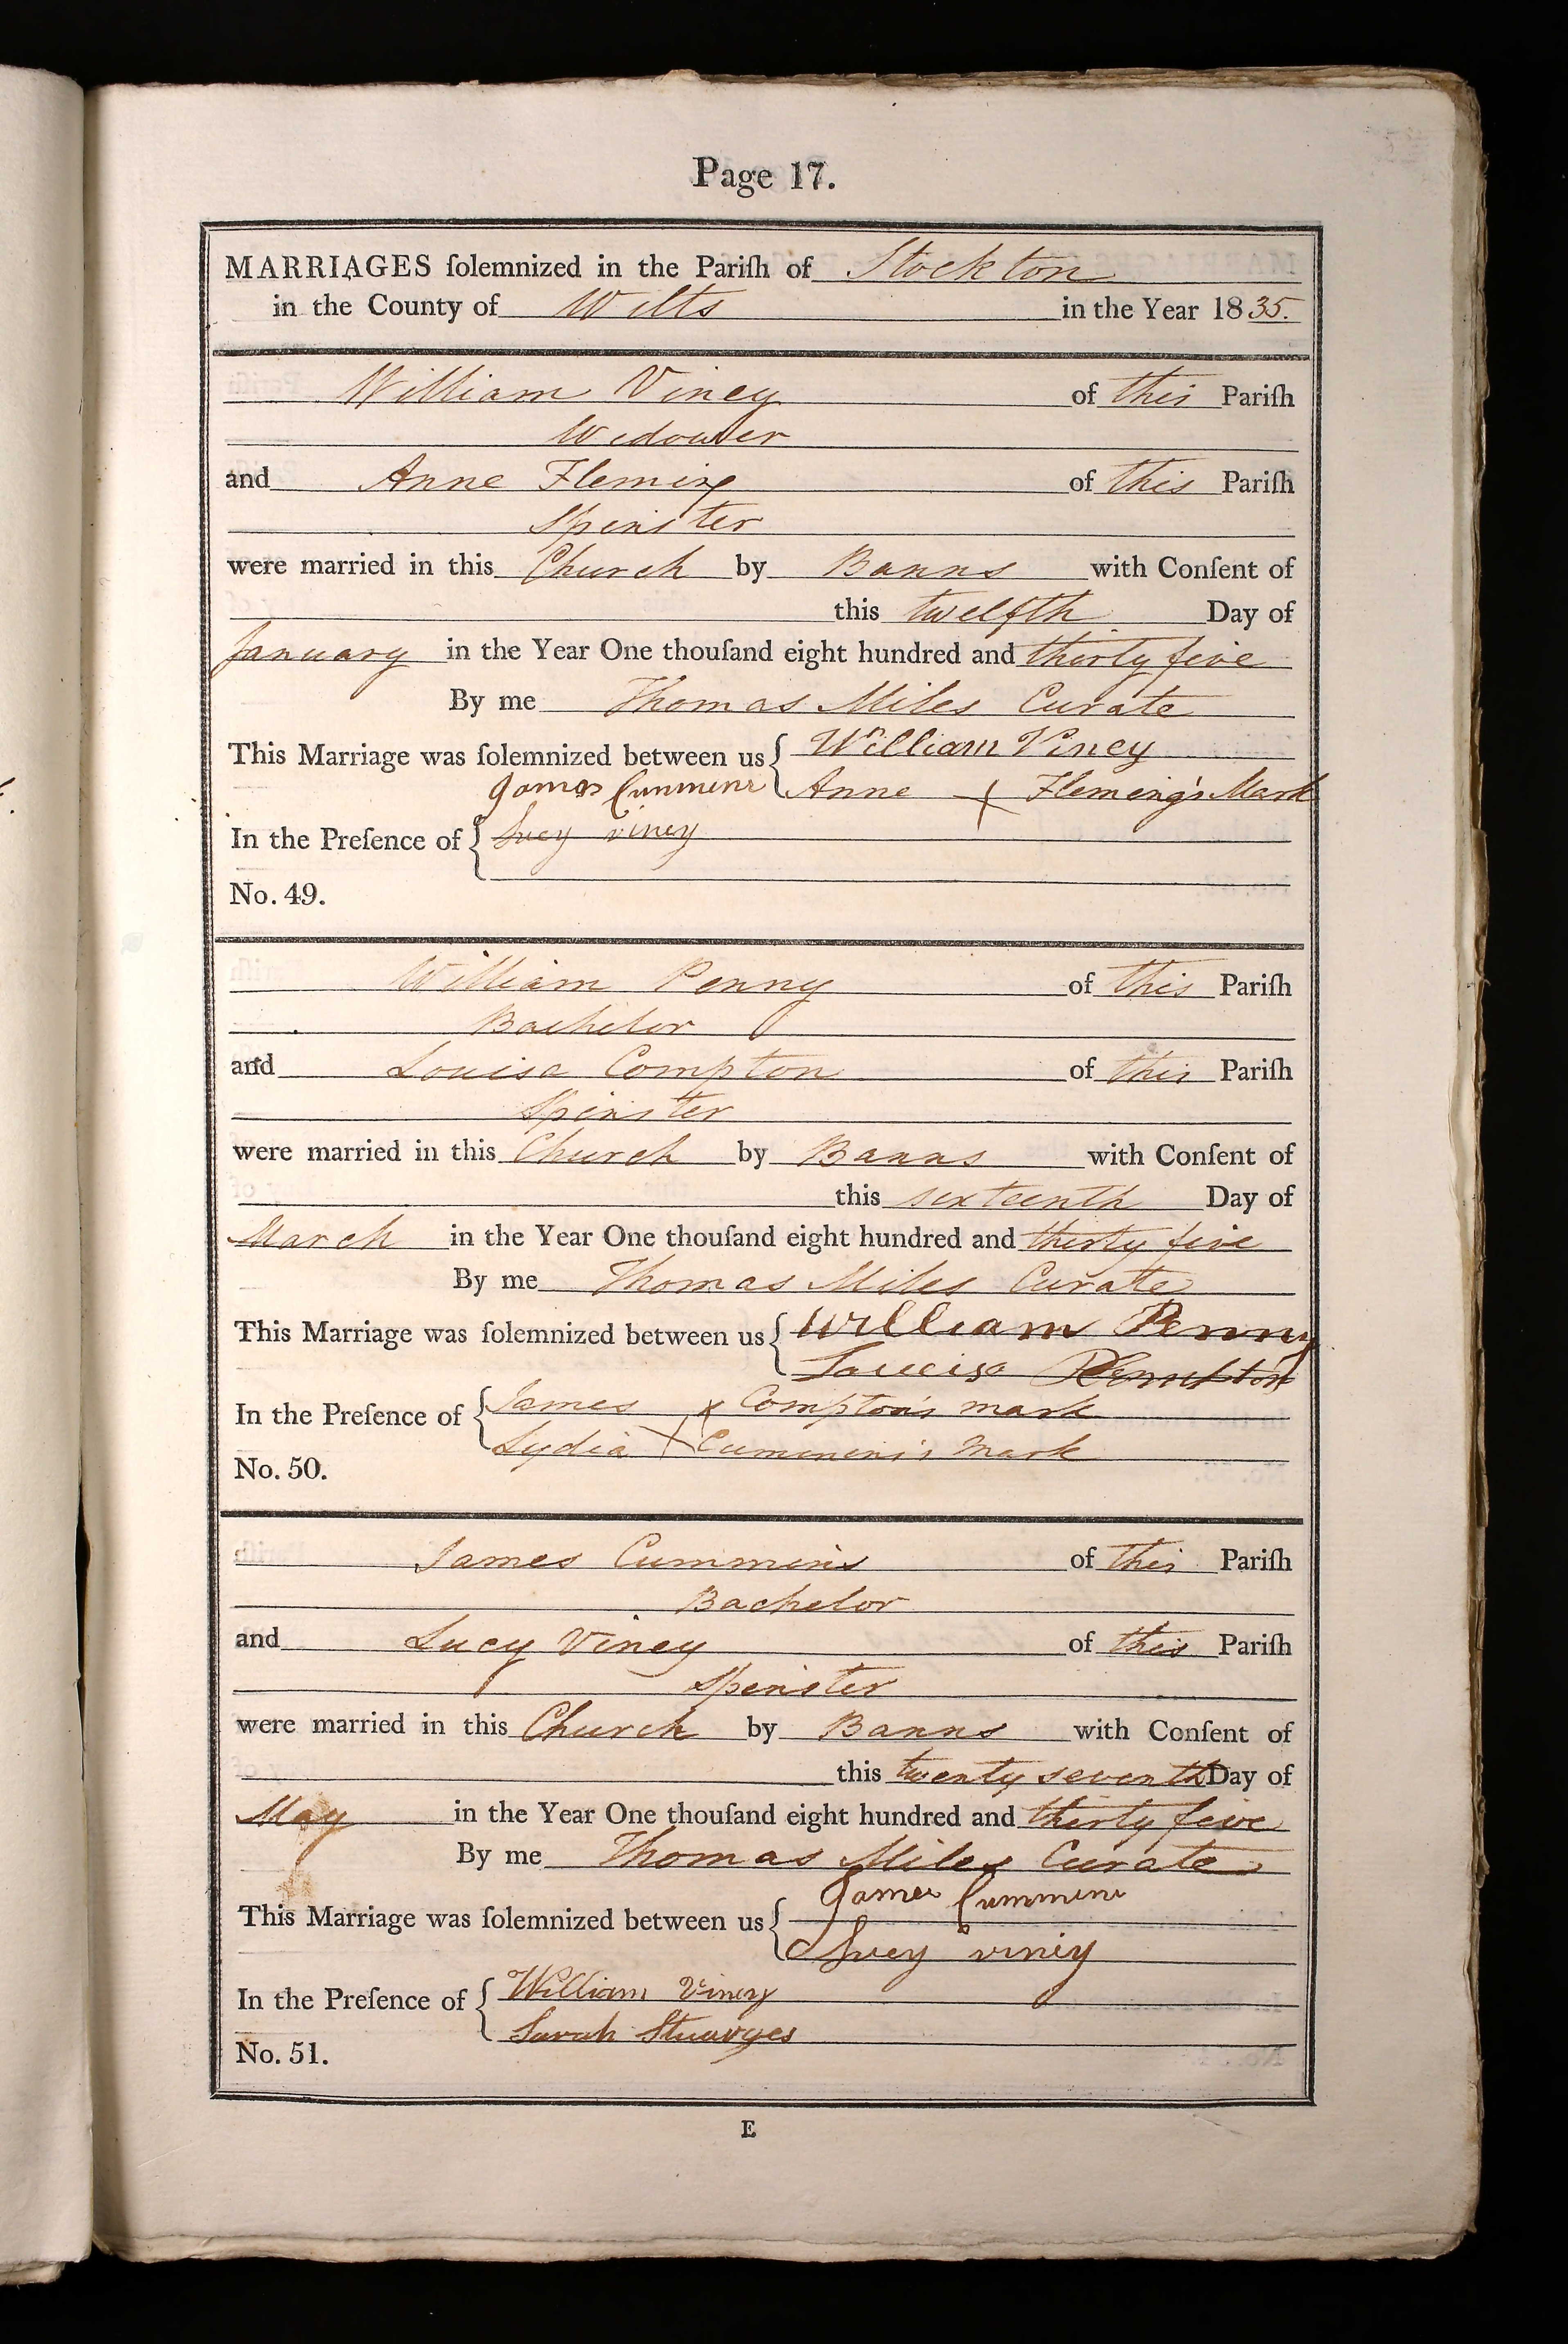 Page 17.
MARRIAGES ſolemnized in the Pariſh of Stockton
in the County of Wilts in the Year 1835.
William Viney of this Pariſh
Widower
and Anne Fleming of this Pariſh
Spinster
were married in this Church by Banns with Conſent of
this twelfth Day of
January in the Year One thouſand eight hundred and thirty five
By me Thomas Miles Curate
This Marriage was ſolemnized between us William Viney
James Cummins Anne X Fleming's Mark
In the Preſence of Lucy viney
No. 49.
William Penny of this Pariſh
Bachelor
and Louisa Compton of this Pariſh
Spinster
were married in this Church by Banns with Conſent of
this sixteenth Day of
March in the Year One thouſand eight hundred and thirty five
By me Thomas Miles Curate
This Marriage was ſolemnized between us William Penny
In the Preſence of James X Compton's mark
Lydia X Cummins's Mark
No. 50.
James Cummins of this Pariſh
Bachelor
and Lucy Viney of this Pariſh
Spinster
were married in this Church by Banns with Conſent of
this twenty seventh Day of
May in the Year One thouſand eight hundred and thirty five
By me Thomas Miles Curate
This Marriage was ſolemnized between us James Cummins
Lucy viney
In the Preſence of William Viney
Sarah Stuarges
No. 51.
E